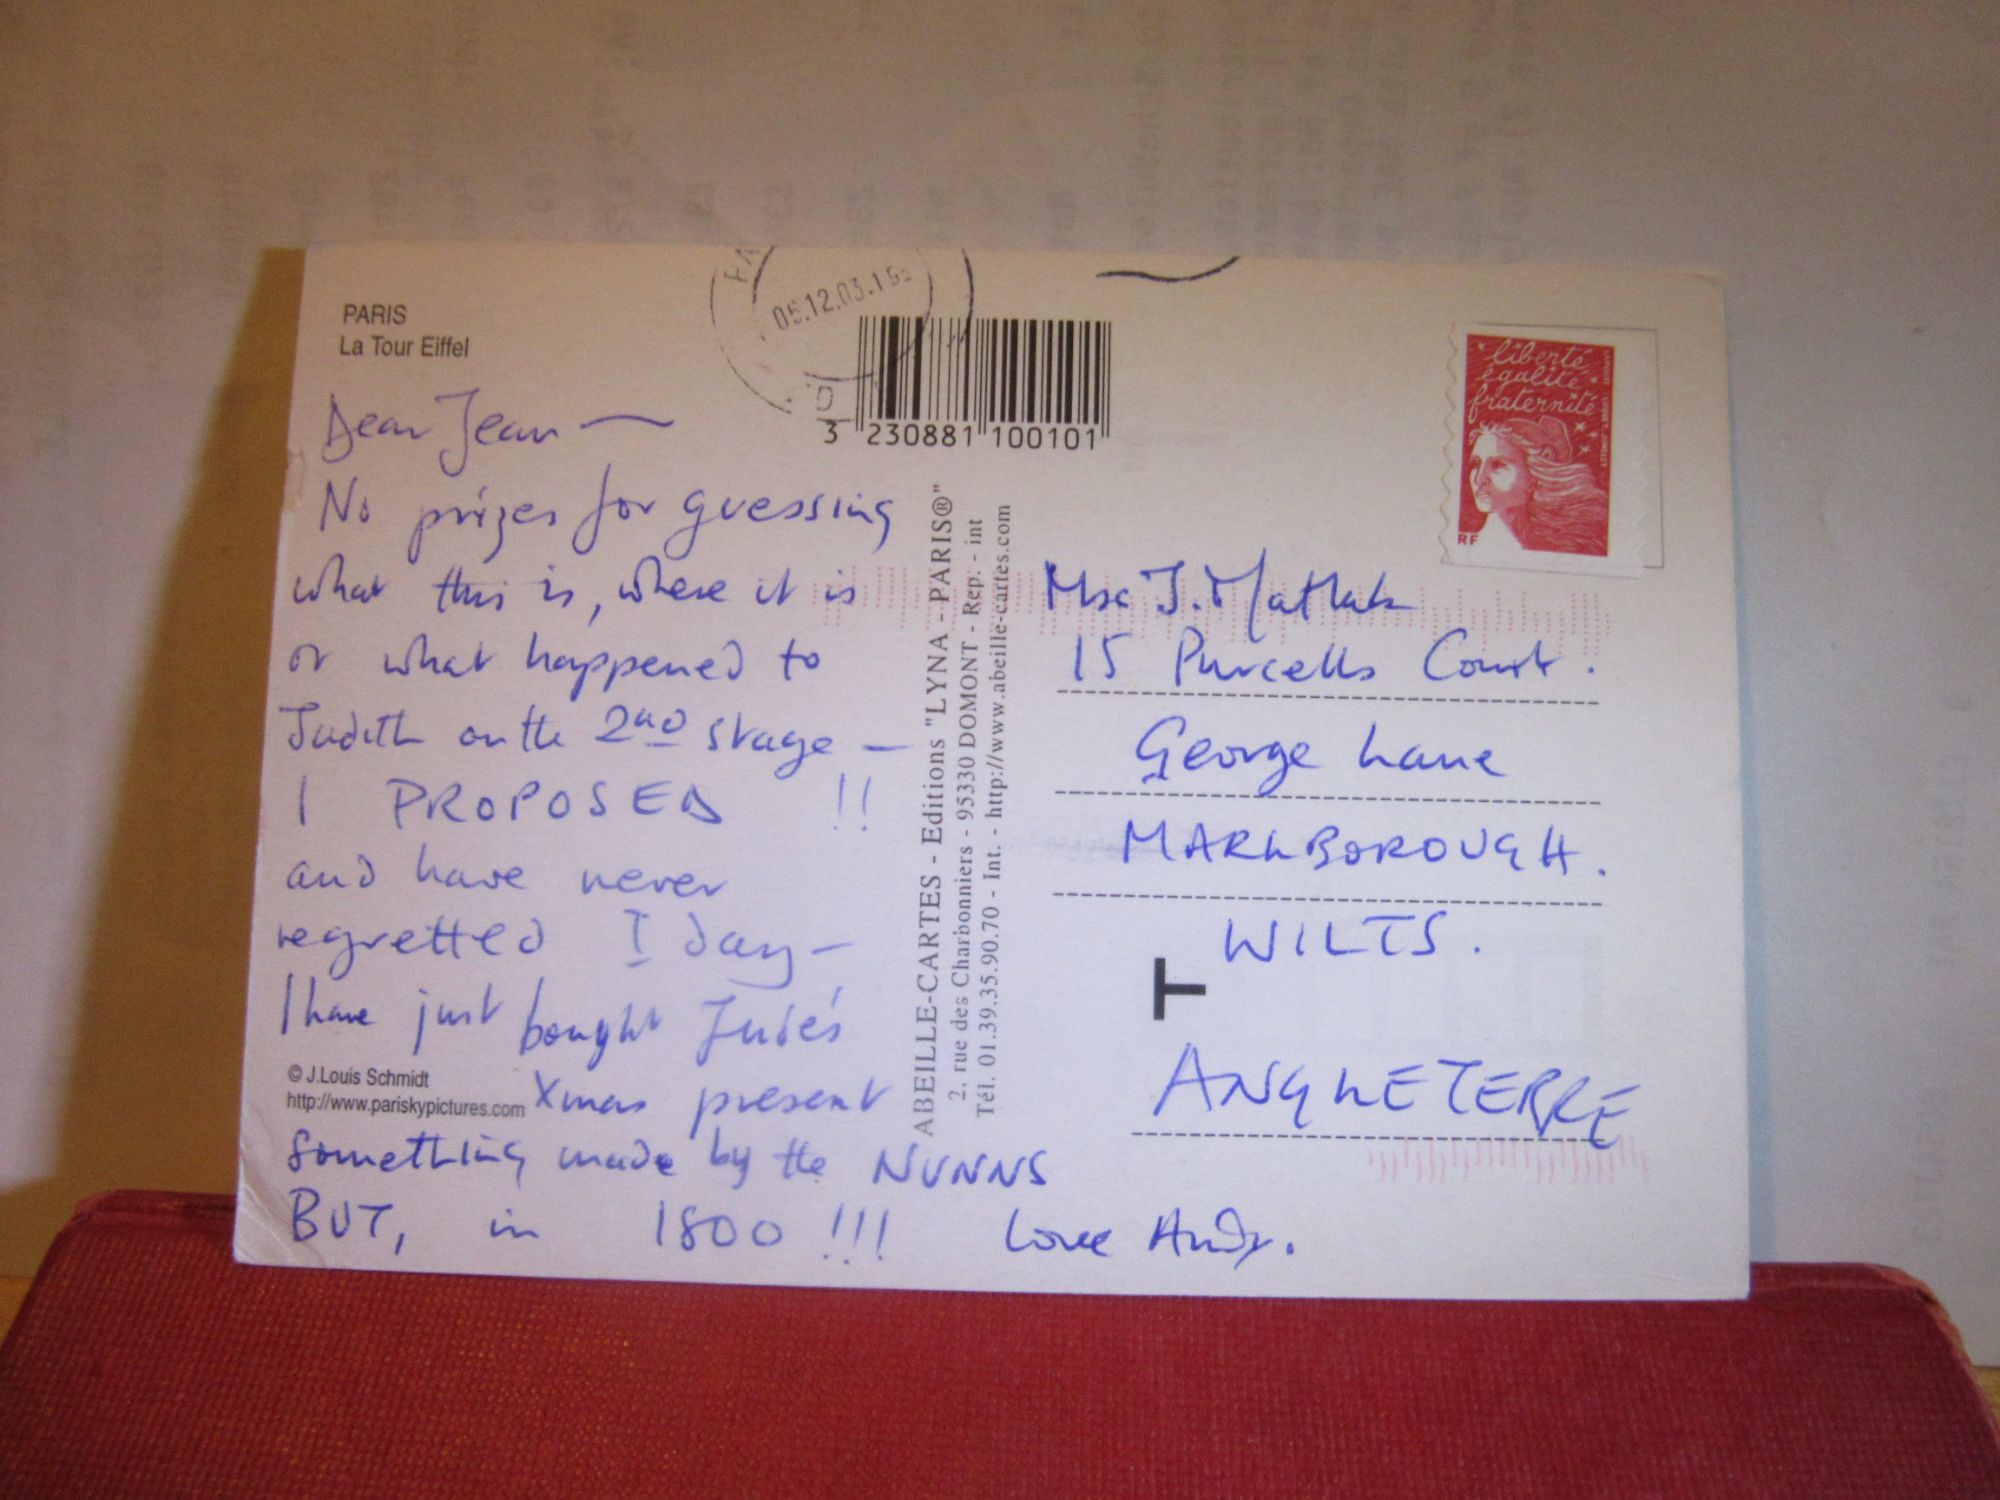 PARIS
La Tour Eiffel
Dear Jean —
No prizes for guessing
what this is, where it is
or what happened to
Judith on the 2ND stage —
I PROPOSED !!
and have never
regretted I day —
I have just bought Judes
Xmas present
something made by the NUNNS
BUT, in 1800 !!! Love Andy.
© J.Louis Schmidt
http://www.pariskypictures.com
05.12.03
3 230881 100101
ABEILLE-CARTES - Editions "LYNA - PARIS®"
2, rue des Charbonniers - 95330 DOMONT - Rep. - int
Tél. 01.39.35.90.70 - Int. - http://www.abeille-cartes.com
liberté
égalité
fraternité
RF
J.
15 Purcells Court.
George Lane
MARLBOROUGH.
WILTS.
T
ANGLETERRE